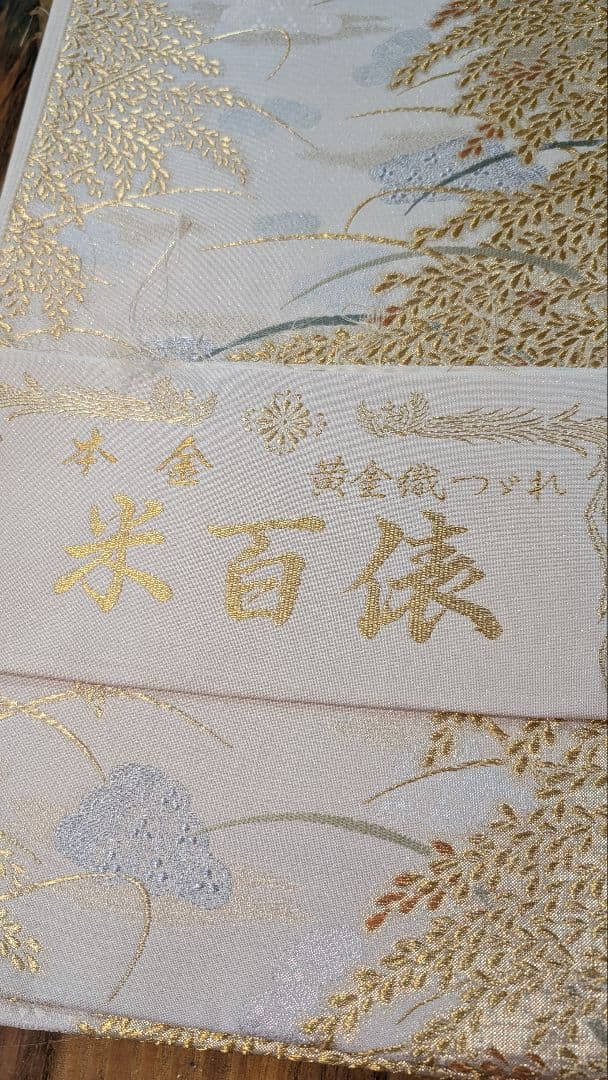 本金
黄金織つゞれ
米百俵